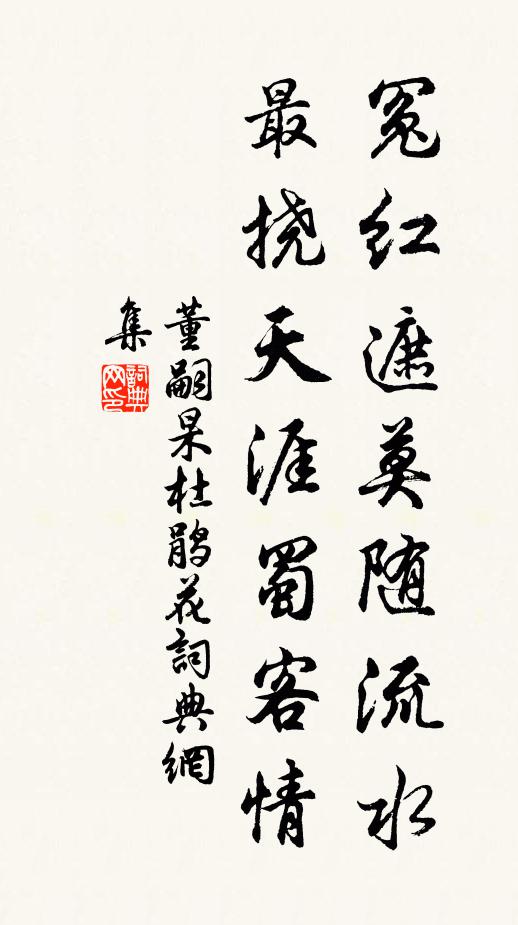 冤红遮莫随流水
最挠天涯蜀客情
董嗣杲杜鹃花詞典網
集
詞典网印